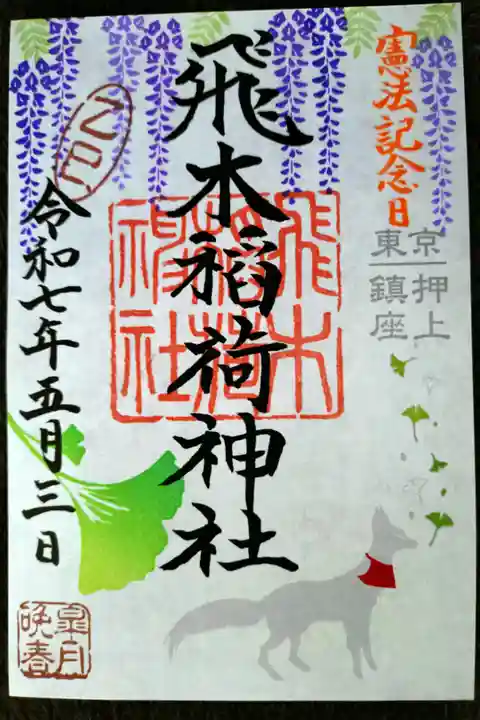 憲法記念日
東京押上鎮座
飛木稲荷神社
飛木稲荷神社
令和七年五月三日
皐月
晩春